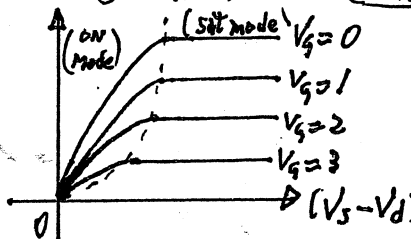 (ON Mode)
(Sat mode)
VG=0
VG=1
VG=2
VG=3
0
(Vs-Vd)